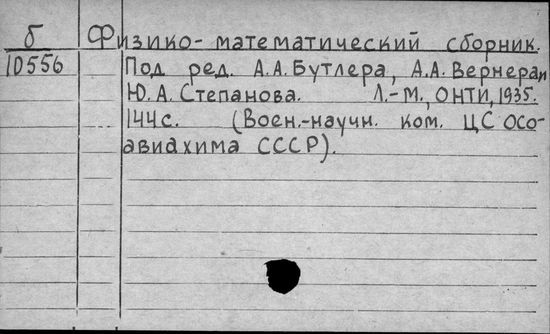 б Физико-математический сборник.
10556 Под ред. А.А.Бутлера, А.А.Вернера и
Ю.А.Степанова. Л.-М., ОНТИ, 1935.
144с. (Воен.-научн. ком. ЦС Осо-
авиахима СССР).